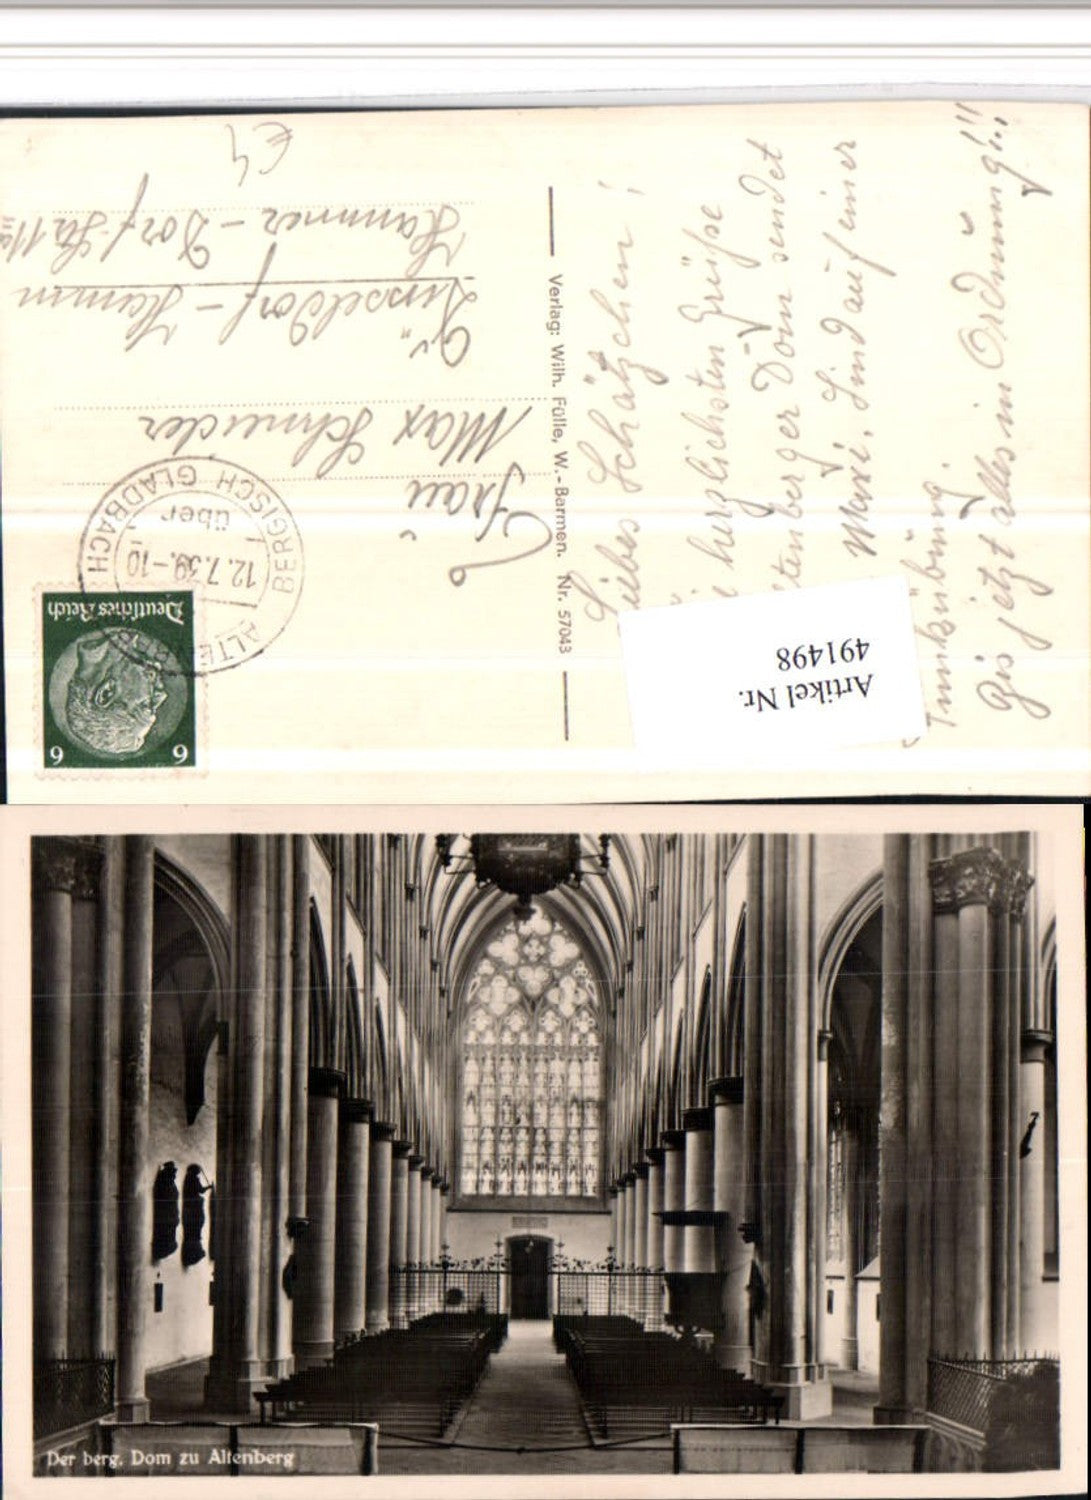 Liebes Schätzchen!
herzlichsten Grüße
Dom sendet
Mimi. Sind auf einer
Bis jetzt alles in Ordnung!!!
Verlag: Wilh. Fülle, W.-Barmen. Nr. 57043
Frau
Max Schneider
Düsseldorf - Hamm
Hammer-Dorf-Str
€4
ALTENBERG
über
BERGISCH GLADBACH
12.7.39.-10
Deutsches Reich
6 6
Artikel Nr.
491498
Der berg. Dom zu Altenberg